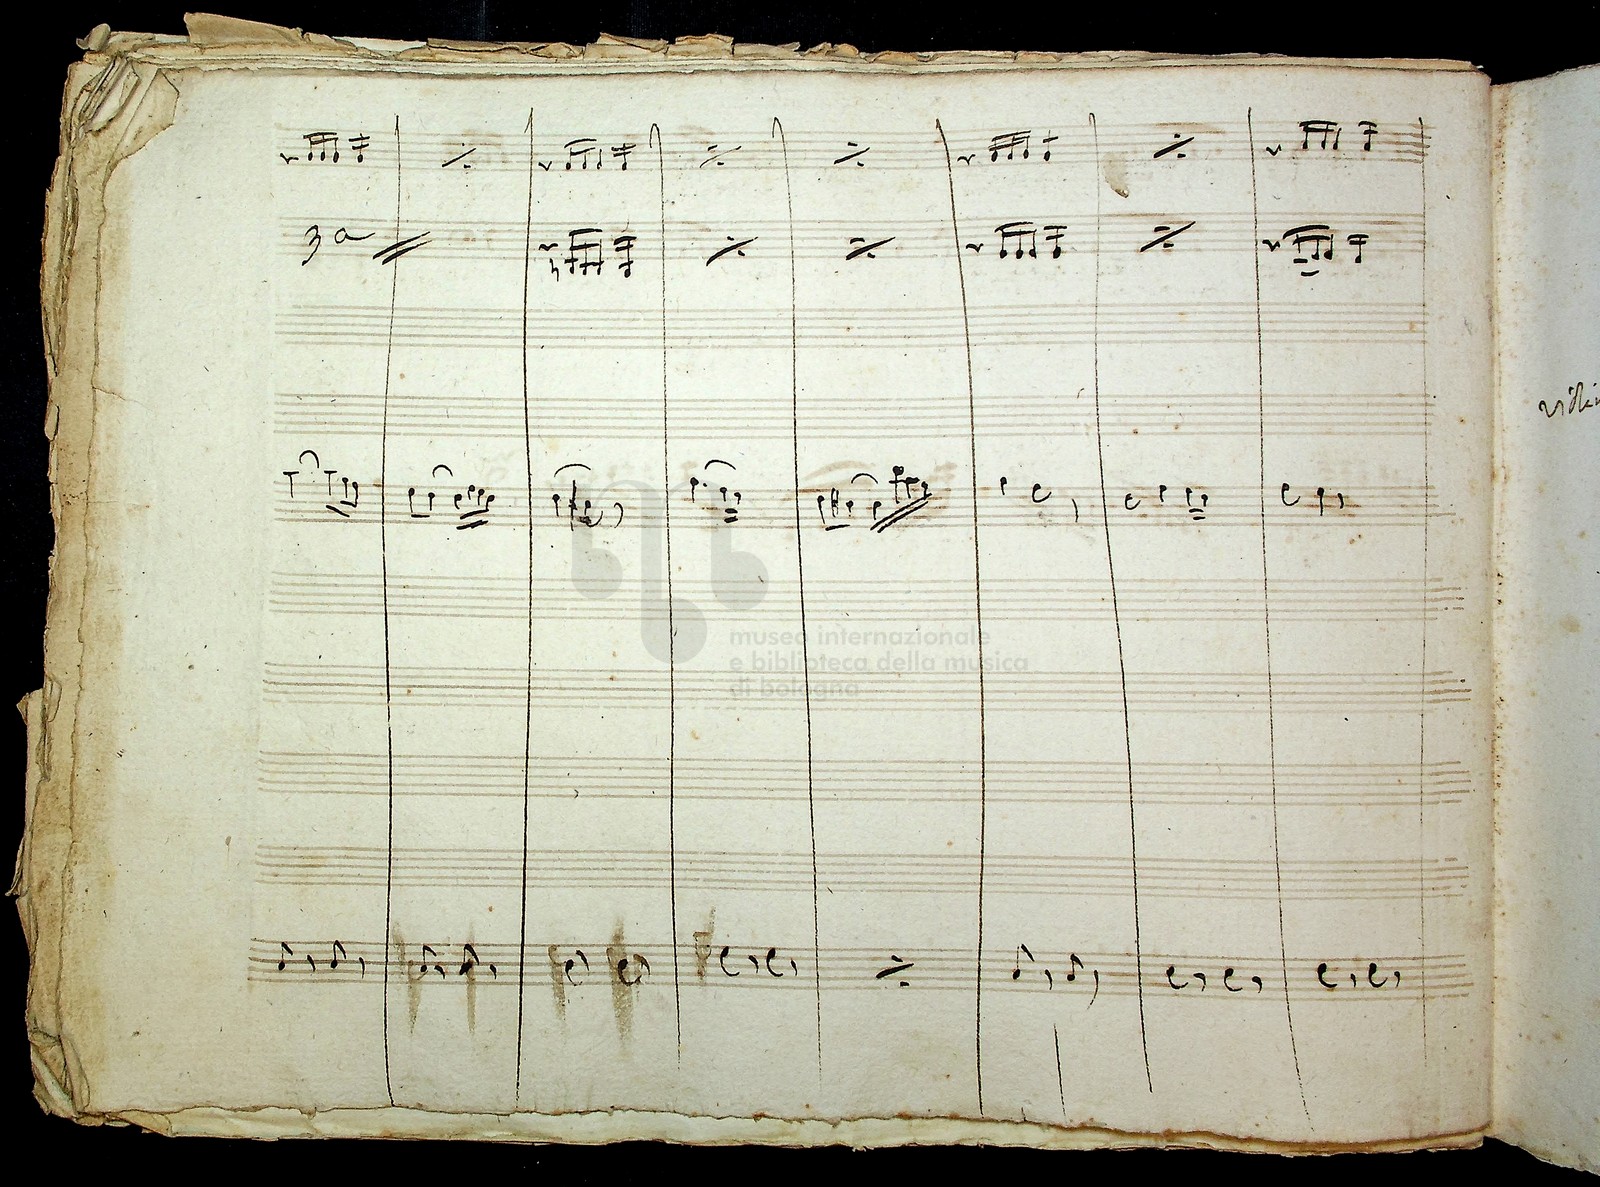 3a
museo internazionale
e biblioteca della musica
di bologna